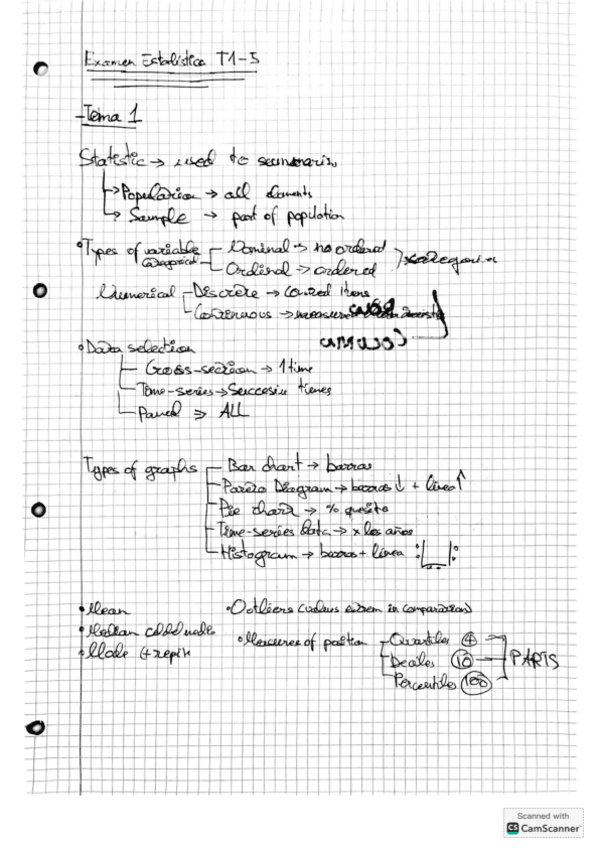 Examen Estadística T1-5
-Tema 1
Statistic → used to summarize
Population → all elements
Sample → part of population
•Types of variable
Categorical
Nominal → no ordered
Ordinal → ordered
Numerical
Discrete → counted items
Continuous →
•Data selection
Cross-section → 1 time
Time-series → Succesive times
Panel ⇒ ALL
Types of graphs
Bar chart → barras
Pareto Diagram → barras ↓ + línea ↑
Pie chart → % quesito
Time-series data → x los años
Histogram → barras + línea
•Mean
•Median
•Mode (+ repite
•Outliers (values extrem in comparation)
•Measures of position
Quartiles 4
Deciles 10
Percentiles 100
PARTS
Scanned with
CS CamScanner